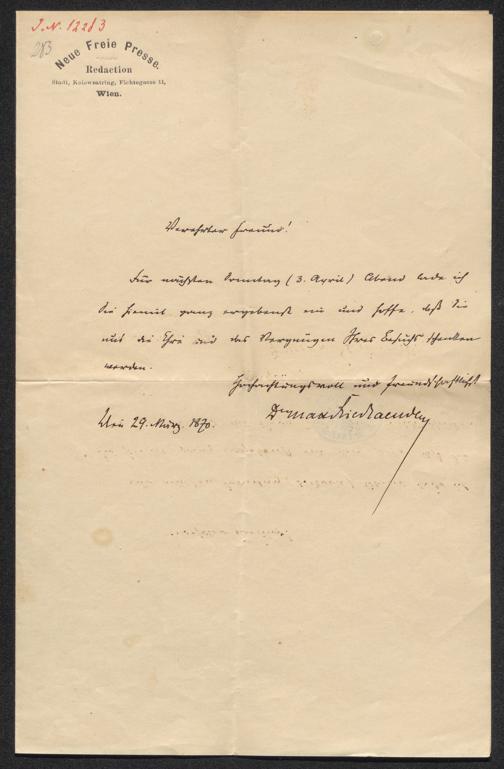 J. N. 12283
283
Neue Freie Presse.
Redaction
Stadt, Kolowratring, Fichtegasse 11,
Wien.
Verehrter Freund!
Für nächsten Sonntag (3. April) Abend lade ich
Sie hiemit ganz ergebenst ein und hoffe, daß Sie
uns die Ehre und das Vergnügen Ihres Besuchs schenken
werden.
Hochachtungsvoll und freundschaftlichst
Dr Max Friedlaender
Wien 29. März 1870.